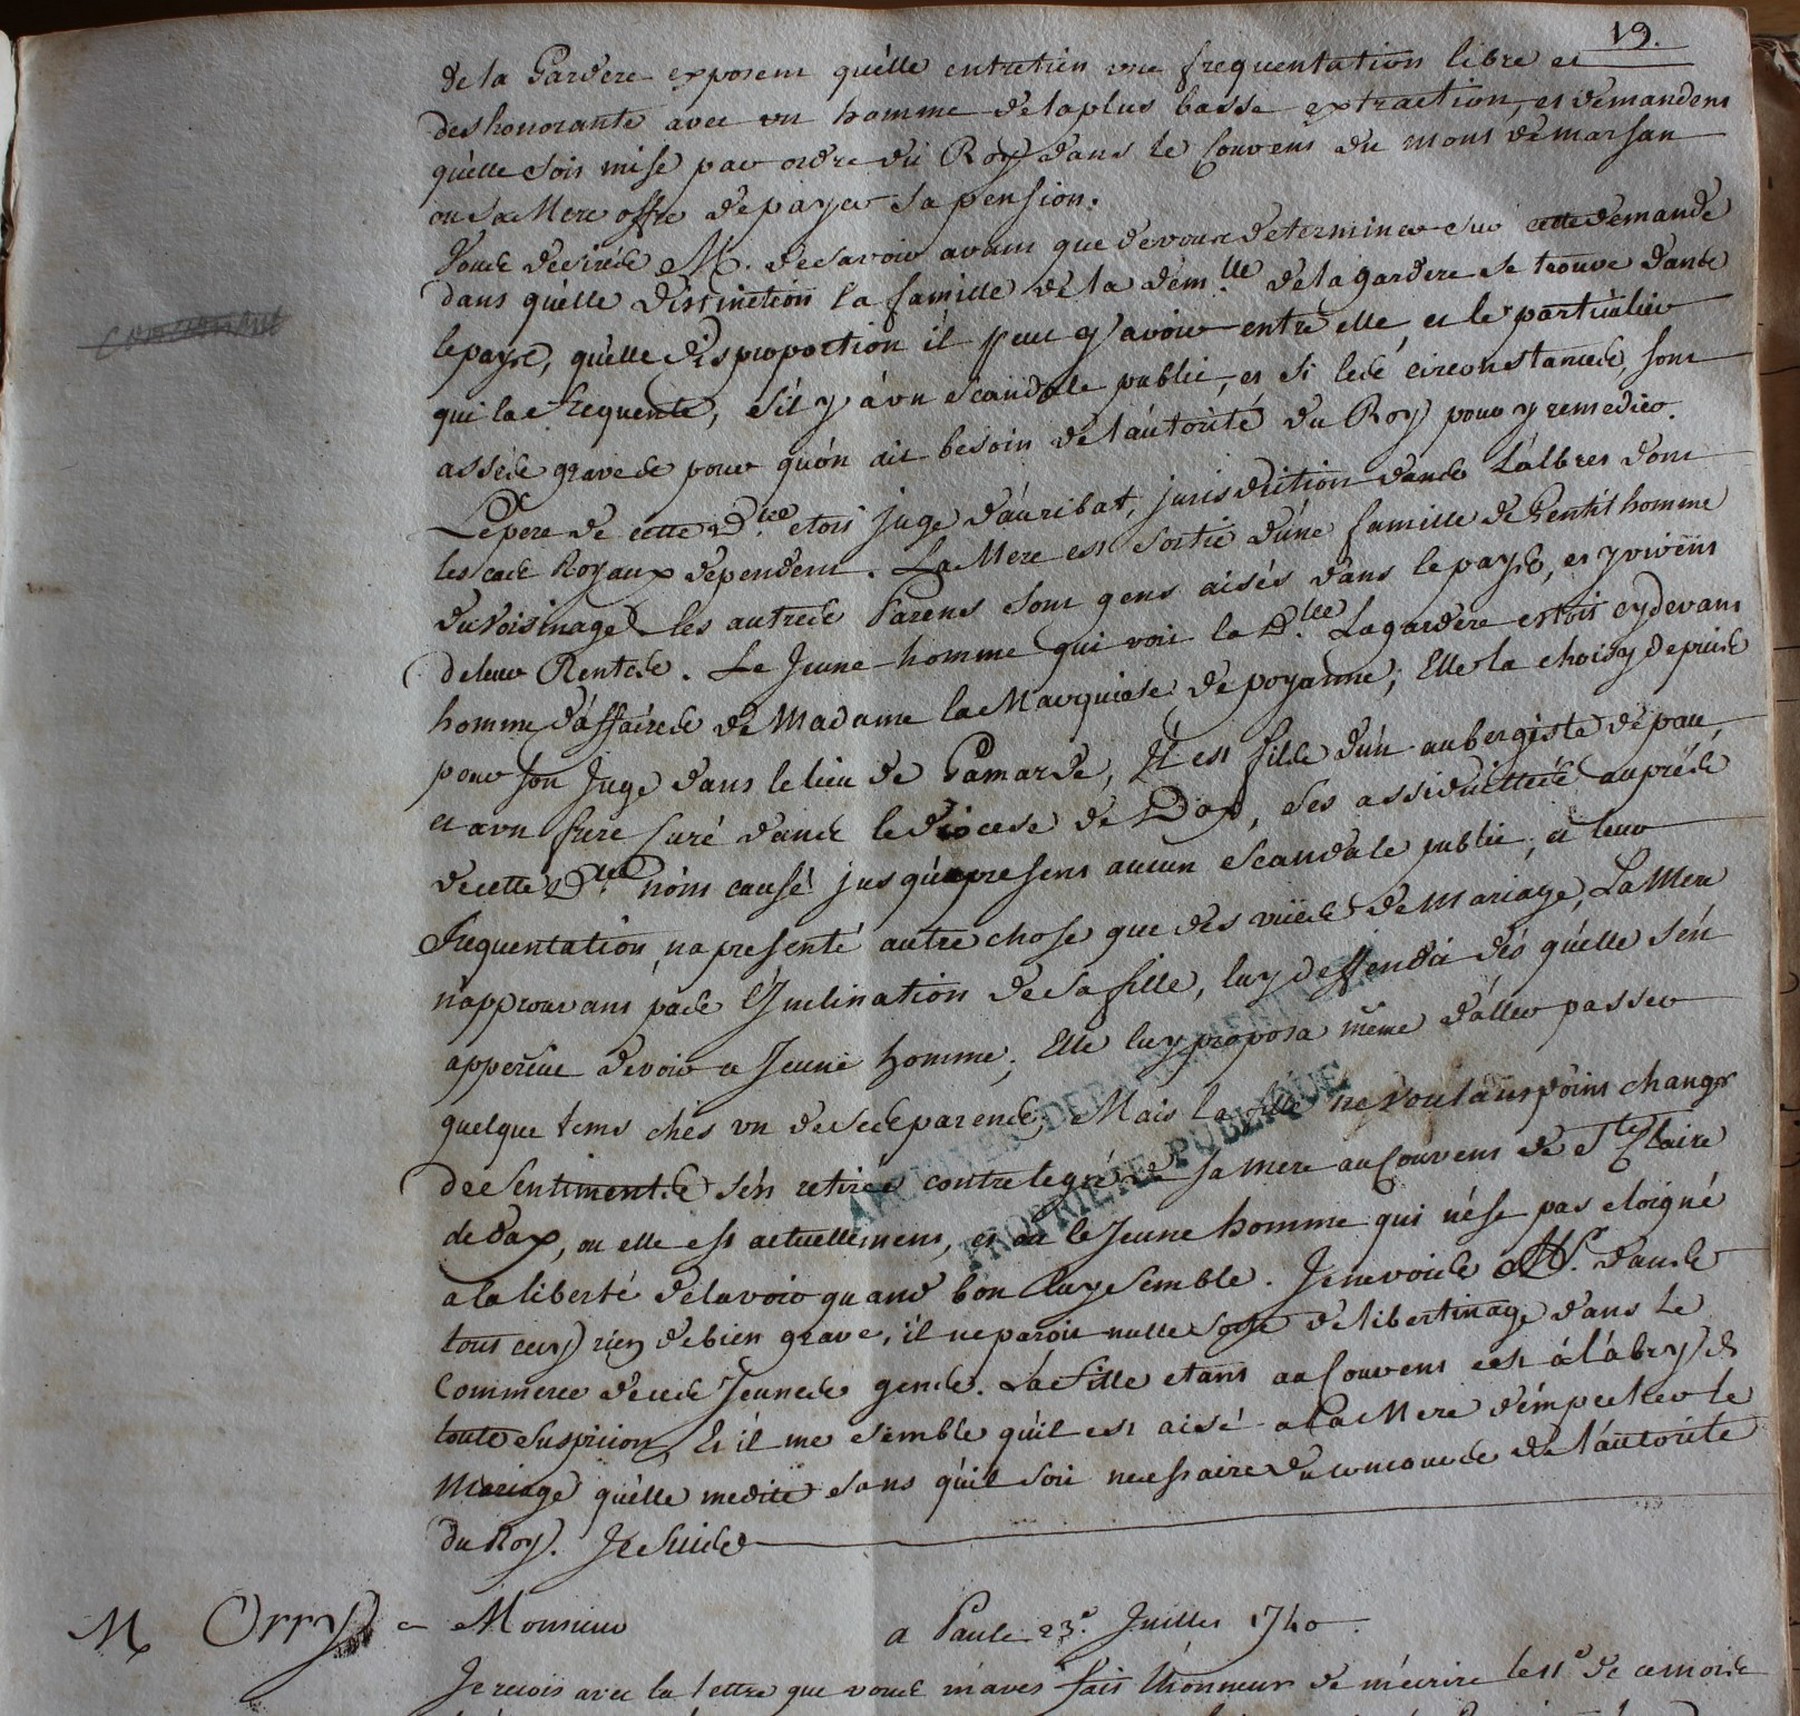 19.
de la Gardere exposent qu'elle entretien une frequentation libre et
deshonorante avec un homme de la plus basse extraction, et demandent
qu'elle soit mise par ordre du Roy dans le Couvent du mont de marsan
ou sa Mere offre de payer sa pension.
Vous desirés M. de savoir avant que de vous determiner sur cette demande
dans qu'elle distinction la famille de la dem.lle de la gardere se trouve dans
le pays, qu'elle disproportion il peut y avoir entre elle et le particulier
qui la frequente, s'il y a un scandale public, et si les circonstances sont
assés graves pour qu'on ait besoin de l'autorité du Roy pour y remedier.
Le pere de cette D.lle etoit juge d'auribat, jurisdition dans L'albret dont
les cas Royaux dependent. La Mere est sortie d'une famille de Gentil homme
du voisinage les autres Parens sont gens aisés dans le pays, et y vivent
de leur Rentes. Le Jeune homme qui voit la D.lle Lagardere estoit cy devant
homme d'affaires de Madame la Marquise de poyanne; Elle la choisy depuis
pour son Juge dans le lieu de Gamarde, Il est fils d'un aubergiste de pau,
et a un frere Curé dans le diocese de Dax, ses assiduittés auprés
de cette D.lle n'ont causé jusqu'apresent aucun scandale public, et leur
frequentation n'a presenté autre chose que des vüés de Mariage, La Mere
n'approuvant pas l'Inclination de sa fille, luy deffendit dés qu'elle s'en
apperçut de voir ce Jeune homme; Elle luy proposa même d'aller passer
quelque tems chés un de ses parens, Mais la fille ne voulant point changer
de sentiments s'en retirée contre le gré de sa mere au Couvent de Ste Claire
de dax, ou elle est actuellement, et ou le Jeune homme qui n'ese pas eloigné
a la liberté de la voir quand bon luy semble. Je ne vois M. dans
tout cecy rien de bien grave, il ne paroit nulle sorte de libertinage dans Le
Commerce de ces Jeunes gens. La fille etant au Couvent est à l'abry de
toute suspicion, Et il me semble qu'il est aisé a la Mere d'émpecher le
Mariage qu'elle medite sans qu'il soit necessaire du concours de l'autorité
du Roy. Je Suis
M Orry
Monsieur
a Pau le 23.e Juillet 1740.
Je reçois avec la lettre que vous m'avés fait l'honneur de m'écrire le 11e de ce mois
ARCHIVES DEPARTEMENTALES
PROPRIETE PUBLIQUE